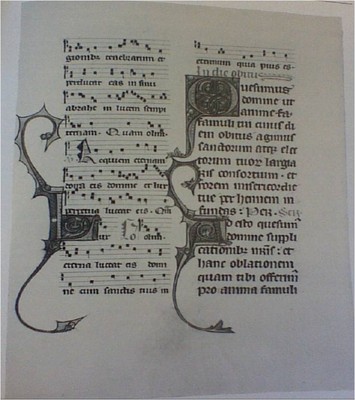 tenebrarum et
perducat eas in sinu
abrahe in lucem sempi
ternam. Quam olim.
Requiem eternam
dona eis domine et lux
perpetua luceat eis. Qm
Lux olim.
eterna luceat eis domi
ne cum sanctis tuis in
eternum quia pius es.
In die obitus
Quesumus
domine ut
anime fa
famuli tui cuius di
em obitus agimus
sanctorum atque elec
torum tuor largia
ris consortium. et
rorem misericordie
tue perhennem in
fundas. Per. Secr
Ad esto quesum
domine suppli
cationibz nris et
hanc oblationem
quam tibi offerim
pro anima famuli